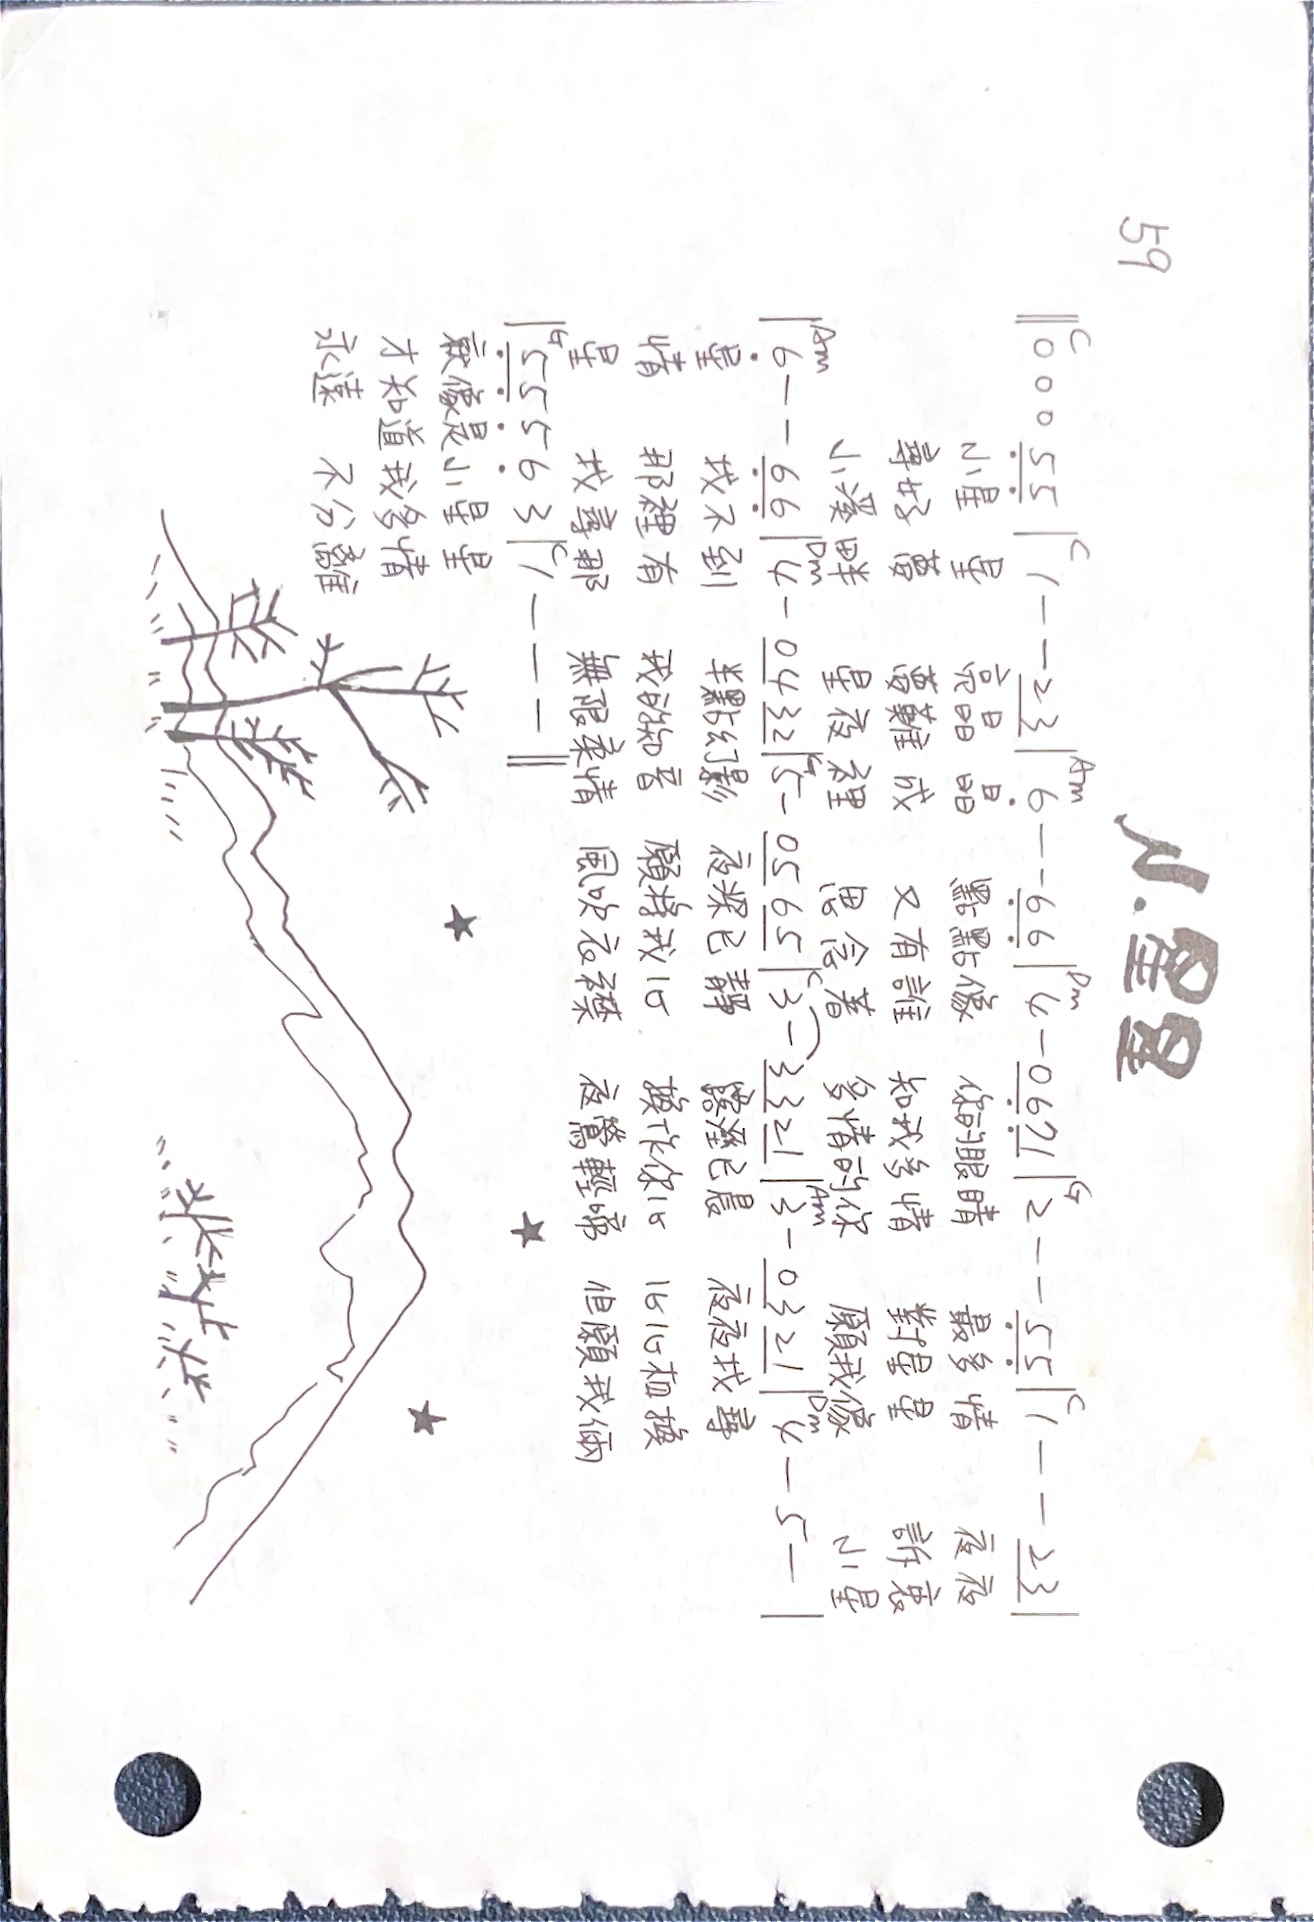 小星星
59
C C Am Dm G C
‖0 0 0 5 5|1 - - 2 3|6 - - 6 6|4 - 0 6 7 1|2 - - 5 5|1 - - 2 3|
小星 星 亮晶 晶 點點像 你的眼睛 最多情 夜夜
尋好夢 夢難成 又有誰 知我多情 對星星 訴衷
小溪畔 星夜裡 思念著 多情的你 願我像 小星
Am Dm G C Am Dm
|6 - - 6 6|4 - 0 4 3 2|5 - 0 5 6 5|3 - 3 3 2 1|3 - 0 3 2 1|4 - 5 - |
星 找不到 半點幻影 夜深已靜 露溼已晨 夜夜找尋
情 那裡有 我的知音 願將我心 換作你心 心心相換
星 找尋那 無限柔情 風吹衣襟 夜鶯輕啼 但願我倆
G C
|5 5 5 6 3|1 - - - ‖
就像是小星星
才知道我多情
永遠 不分離